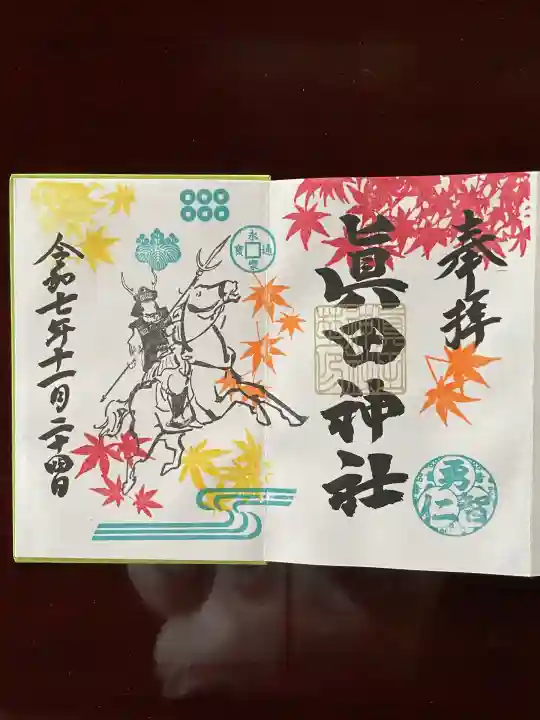 奉拝
眞田神社
勇
智
仁
永
通
寳
令和七年十一月二十四日